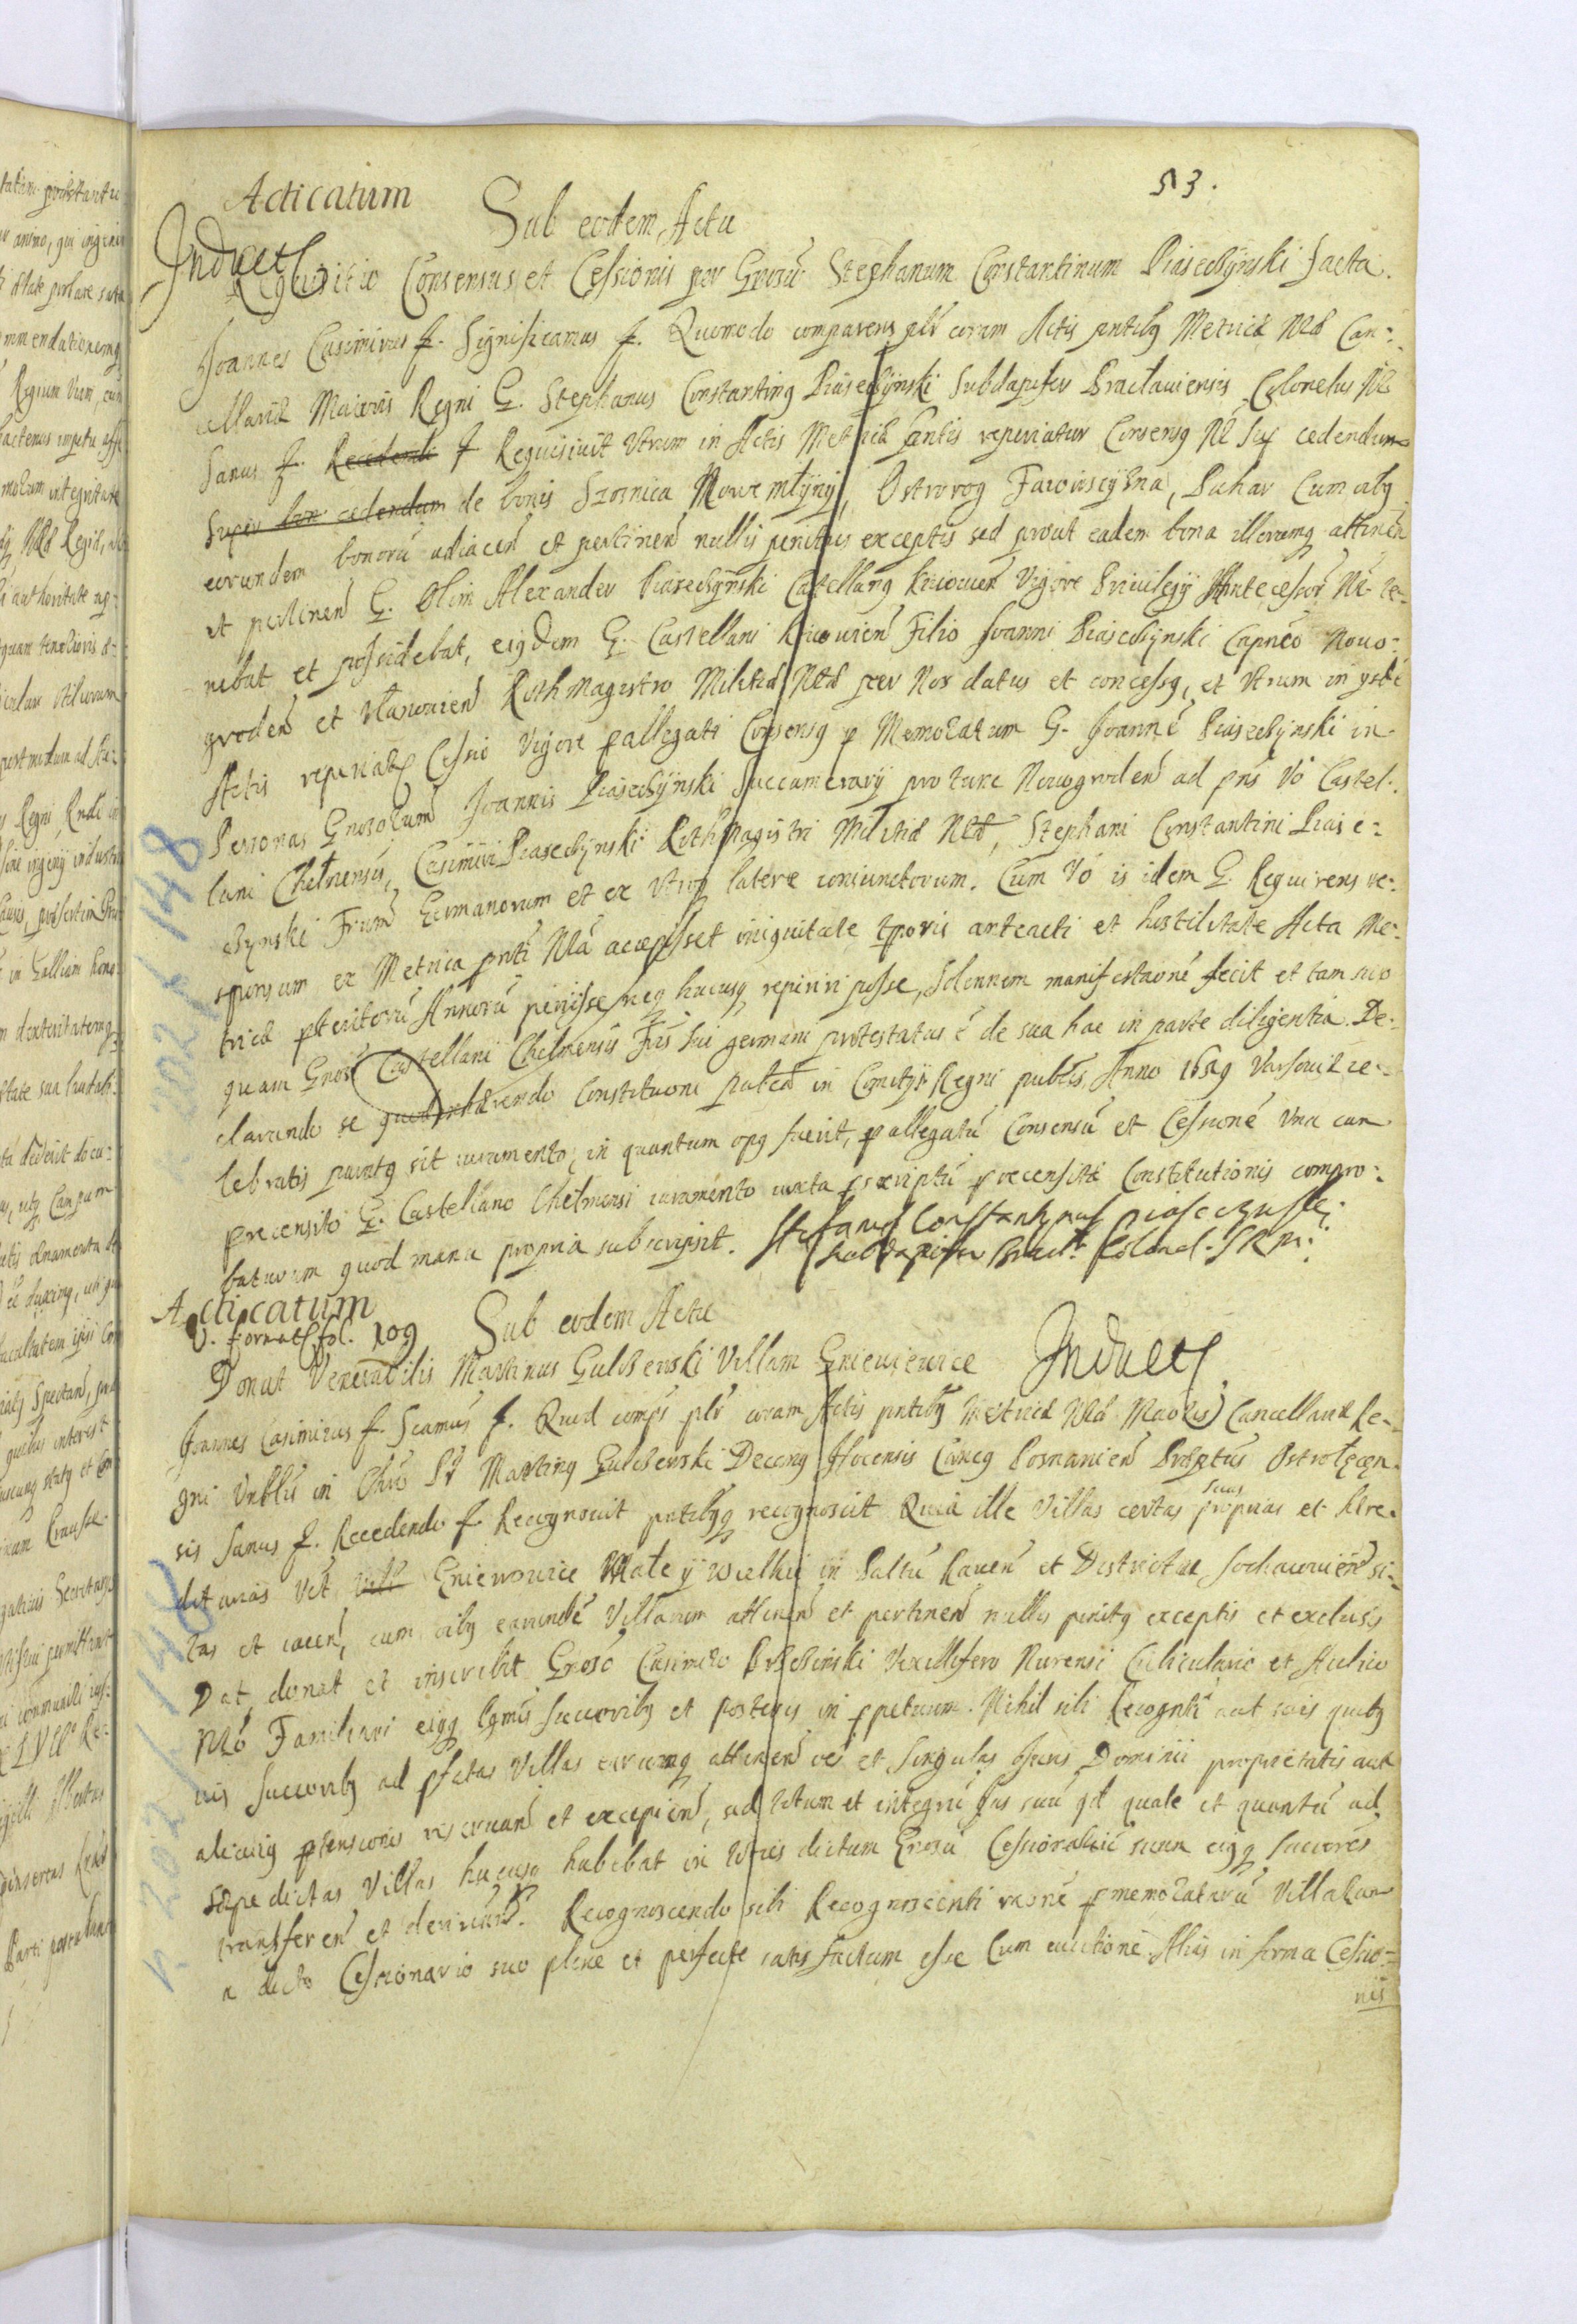 53.
Acticatum
Sub eodem Actu
Induct
Requisitio Consensus et Cessionis per Gnosũ Stephanum Constantinum Piaseczÿnski facta.
Joannes Casimirus f. Significamus f. Quomodo comparens plr coram Actis pntibq Metricæ Nræ Can-
cellariæ Maioris Regni G. Stephanus Constantinq Piaseczÿnski Subdapifer Braclauiensis Colonelus Nr
Sanus f. Recedendo f Requisiuit Utrum in Actis Metricæ pntis reperiatur Consensq Nr Sup cedendum
Super cedendum de bonis Szosnica Nowe młÿnÿ, Ostrorog Pahar Cum alÿ
eorundem bonorũ adiacen et pertinen nullis penitus exceptis sed prout eadem bona illorumq attinen
et pertinen G. Olim Alexander Piaseczÿnski Castellanq Kiiouien Vigore Priuilegÿ Antecessor Nr te-
nebat et possidebat, eiqdem G. Castellani Kiiouien Filio Joanni Piaseczÿnski Capneo Nouo-
groden et Ulanouien Rothmagistro Militiæ Nræ per Nos datus et concessq, et Utrum in ystis
Actis reperiatq Cessio Vigore pallegati Consensq p Memoratum G. Joannẽ Piaseczÿnski in
Personas Gnosorum Joannis Piaseczÿnski Succamerarÿ pro tunc Nouogroden ad pns Vo Castel-
lani Chelmensis, Casimiri Piaseczÿnski Rothmagistri Militiæ Nræ, Stephani Constantini Piase-
czynski Frum Germanorum et ex utroq latere coniunctorum. Cum Vo is idem G. Requirens re-
sponsum ex Metrica pnti Nrã accepisset iniquitate tporis anteacti et hostilitate Acta Me-
tricæ pteritorũ Annorũ periisse neq hucusq reperiri posse, Solennem manifestaonẽ fecit et tam suo
quam Gnosi Castellani Chelmensis Fris sui germani protestatus ẽ de sua hac in parte diligentia De-
clarando se Constitutioni in Comitÿs Regni publis Anno 1659 Varsouiæ ce-
lebratis paratq sit iuramento, in quantum opq fuerit, pallegatũ Consensũ et Cessionẽ Una cum
precensito G. Castellano Chelmensi iuramento iuxta pscriptũ precensitæ Constitutionis compro-
baturum quod manu propria subscripsit. Stefanus Constantynus Piaseczynski
Subdapifer Bracl. Colonel. S R M.
Acticatum
V. Format fol. 109
Sub eodem Actu
Donat Venerabilis Martinus Gulczewski Villam Gniewiewice
Induct
Joannes Casimirus f. Scamus f. Quod comps plr coram Actis pntibq Metricæ Nræ Maoris Cancellariæ Re-
gni Vnblis in Chro Pr Martinq Gulczewski Decanq Canq Posnanien Ostrołęcen-
sis Sanus f. Recedendo f. Recognouit pntibqq recognoscit Quia ille Villas certas suas proprias et here-
ditarias Vct Gniewowice Małe ÿ wielkie in Paltu Rauen et Districtu Sochaczouien si-
tas et iacen, cum oibq earundẽ Villarum attinen et pertinen nullis penitq exceptis et exclusis
Dat donat et inscribit Gnoso Casimiro Brzezinski Vexillifero Nurensi Cubiculario et Aulico
Nro Familiari eiqq lgmis successoribq et posteris in ppetuum. Nihil sibi Recognti aut suis quibq
uis Successoribq ad pfatas Villas earumq attinen oes et singulas Juris Dominii proprietatis aut
alicuiq ptensionis reseruan et excipien, sed totum et integrũ Jus suũ qd quale et quantũ ad
sæpe dictas Villas hucusq habebat in toties dictum Gnosũ Cessionariũ suum eiqq Successores
transferen et deriuan. Recognoscendo sibi Recognoscenti raone pmemoratarũ Villarum
a dicto Cessionario suo plene et perfecte satisfactum esse Cum euictione Alias in forma Cessio-
nis